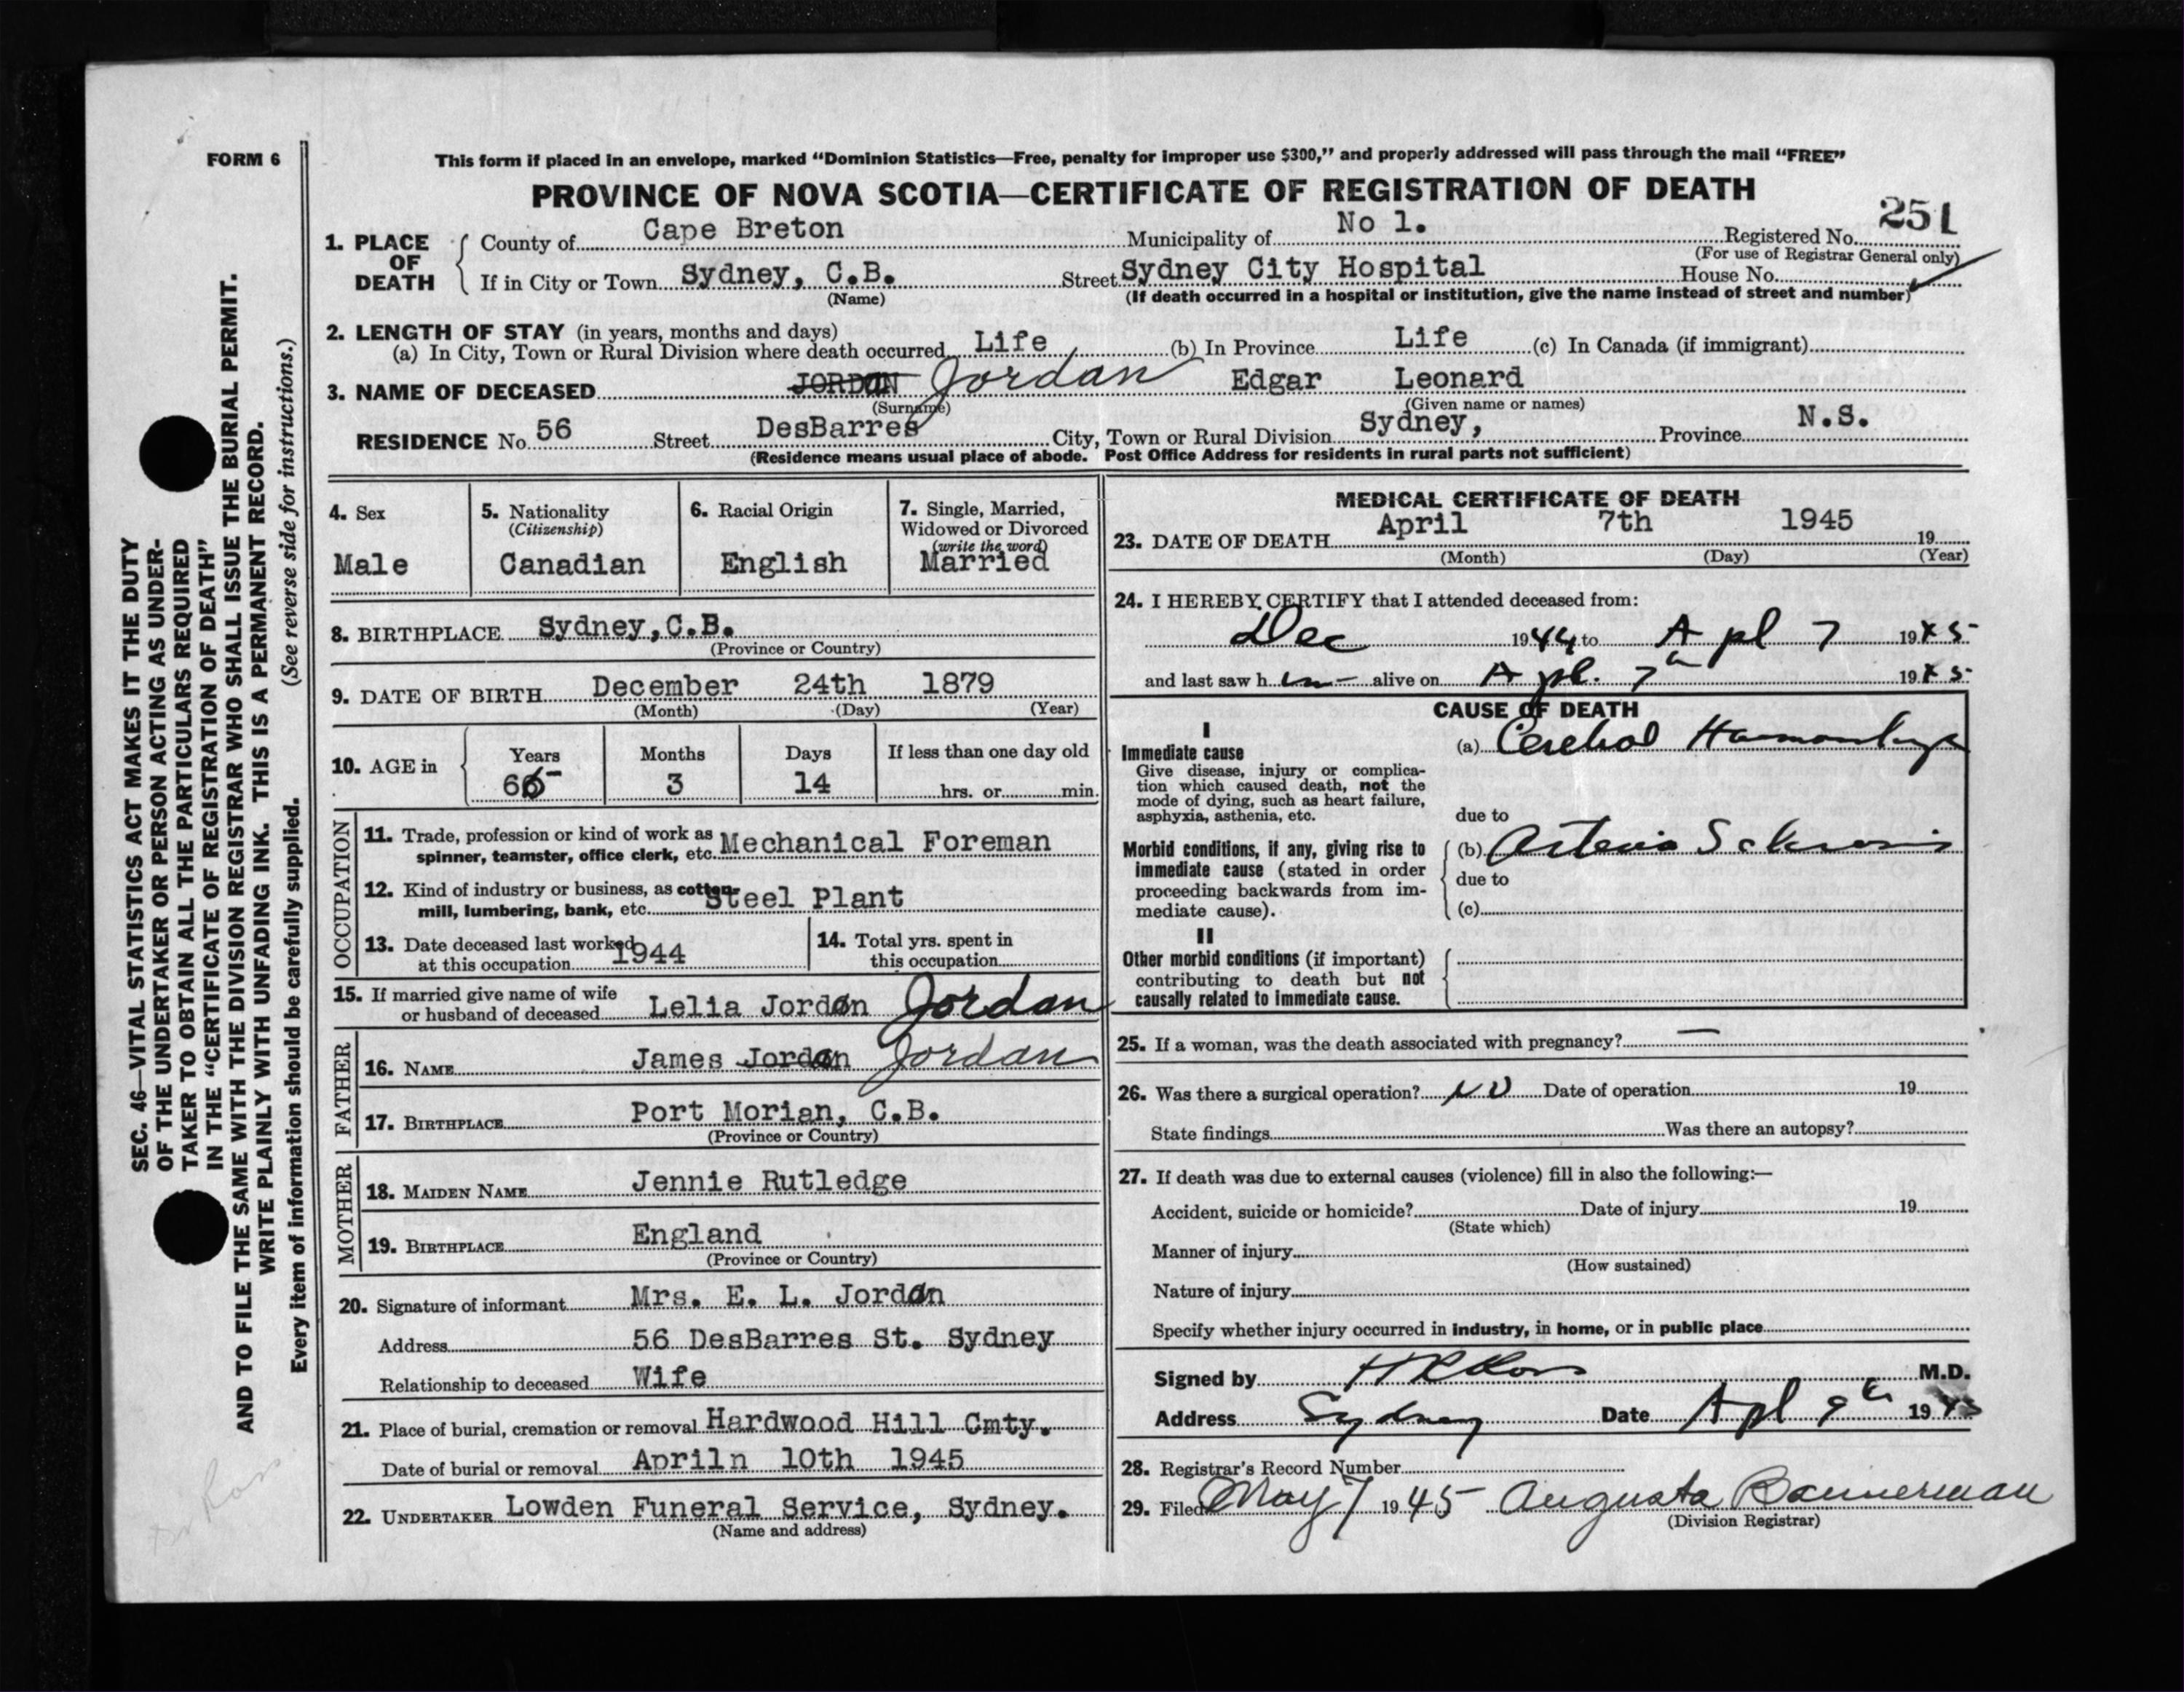 FORM 6
This form if placed in an envelope, marked “Dominion Statistics—Free, penalty for improper use $300,” and properly addressed will pass through the mail “FREE”
PROVINCE OF NOVA SCOTIA—CERTIFICATE OF REGISTRATION OF DEATH
251
1. PLACE OF DEATH
County of Cape Breton Municipality of No 1. Registered No.
(For use of Registrar General only)
If in City or Town Sydney, C.B. Street Sydney City Hospital House No.
(Name) (If death occurred in a hospital or institution, give the name instead of street and number)
2. LENGTH OF STAY (in years, months and days)
(a) In City, Town or Rural Division where death occurred Life (b) In Province Life (c) In Canada (if immigrant)
3. NAME OF DECEASED JORDAN Jordan Edgar Leonard
(Surname) (Given name or names)
RESIDENCE No. 56 Street DesBarres City, Town or Rural Division Sydney, Province N.S.
(Residence means usual place of abode. Post Office Address for residents in rural parts not sufficient)
4. Sex
Male
5. Nationality
(Citizenship)
Canadian
6. Racial Origin
English
7. Single, Married,
Widowed or Divorced
(write the word)
Married
8. BIRTHPLACE Sydney, C.B.
(Province or Country)
9. DATE OF BIRTH December 24th 1879
(Month) (Day) (Year)
10. AGE in Years Months Days If less than one day old
65 3 14 hrs. or min.
OCCUPATION
11. Trade, profession or kind of work as
spinner, teamster, office clerk, etc. Mechanical Foreman
12. Kind of industry or business, as cotton-
mill, lumbering, bank, etc. Steel Plant
13. Date deceased last worked
at this occupation 1944
14. Total yrs. spent in
this occupation
15. If married give name of wife
or husband of deceased Lelia Jordan Jordan
FATHER
16. NAME James Jordan Jordan
17. BIRTHPLACE Port Morian, C.B.
(Province or Country)
MOTHER
18. MAIDEN NAME Jennie Rutledge
19. BIRTHPLACE England
(Province or Country)
20. Signature of informant Mrs. E. L. Jordan
Address 56 DesBarres St. Sydney
Relationship to deceased Wife
21. Place of burial, cremation or removal Hardwood Hill Cmty.
Date of burial or removal Apriln 10th 1945
22. UNDERTAKER Lowden Funeral Service, Sydney.
(Name and address)
MEDICAL CERTIFICATE OF DEATH
23. DATE OF DEATH April 7th 1945 19
(Month) (Day) (Year)
24. I HEREBY CERTIFY that I attended deceased from:
Dec 1944 to Apl 7 1945
and last saw h im alive on Apl. 7th 1945
CAUSE OF DEATH
I
Immediate cause
Give disease, injury or complica-
tion which caused death, not the
mode of dying, such as heart failure,
asphyxia, asthenia, etc.
(a) Cerebral
due to
Morbid conditions, if any, giving rise to
immediate cause (stated in order
proceeding backwards from im-
mediate cause).
(b) Arterio Sclerosis
due to
(c)
II
Other morbid conditions (if important)
contributing to death but not
causally related to immediate cause.
25. If a woman, was the death associated with pregnancy? —
26. Was there a surgical operation? NO Date of operation 19
State findings Was there an autopsy?
27. If death was due to external causes (violence) fill in also the following:—
Accident, suicide or homicide? Date of injury 19
(State which)
Manner of injury
(How sustained)
Nature of injury
Specify whether injury occurred in industry, in home, or in public place
Signed by M.D.
Address Sydney Date Apl 9th 1945
28. Registrar's Record Number
29. Filed May 7 1945 Augusta Bannerman
(Division Registrar)
SEC. 46—VITAL STATISTICS ACT MAKES IT THE DUTY
OF THE UNDERTAKER OR PERSON ACTING AS UNDER-
TAKER TO OBTAIN ALL THE PARTICULARS REQUIRED
IN THE “CERTIFICATE OF REGISTRATION OF DEATH”
AND TO FILE THE SAME WITH THE DIVISION REGISTRAR WHO SHALL ISSUE THE BURIAL PERMIT.
WRITE PLAINLY WITH UNFADING INK. THIS IS A PERMANENT RECORD.
Every item of information should be carefully supplied. (See reverse side for instructions.)